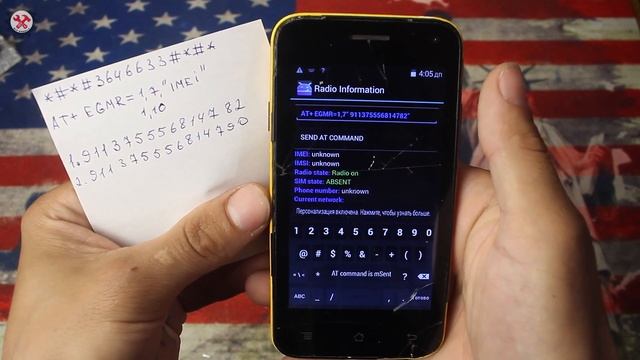 *#*#3646633#*#*
AT+ EGMR=1,7,"IMEi"
1,10
1.911375556814782
2.911375556814790
4:05 дп
Radio Information
AT+ EGMR=1,7" 911375556814782"
SEND AT COMMAND
IMEI: unknown
IMSI: unknown
Radio state: Radio on
SIM state: ABSENT
Phone number: unknown
Current network:
Персонализация включена. Нажмите, чтобы узнать больше.
1 2 3 4 5 6 7 8 9 0
@ # $ % & - + ( )
=\< * AT command is mSent ? 
ABC _ / , . Готово